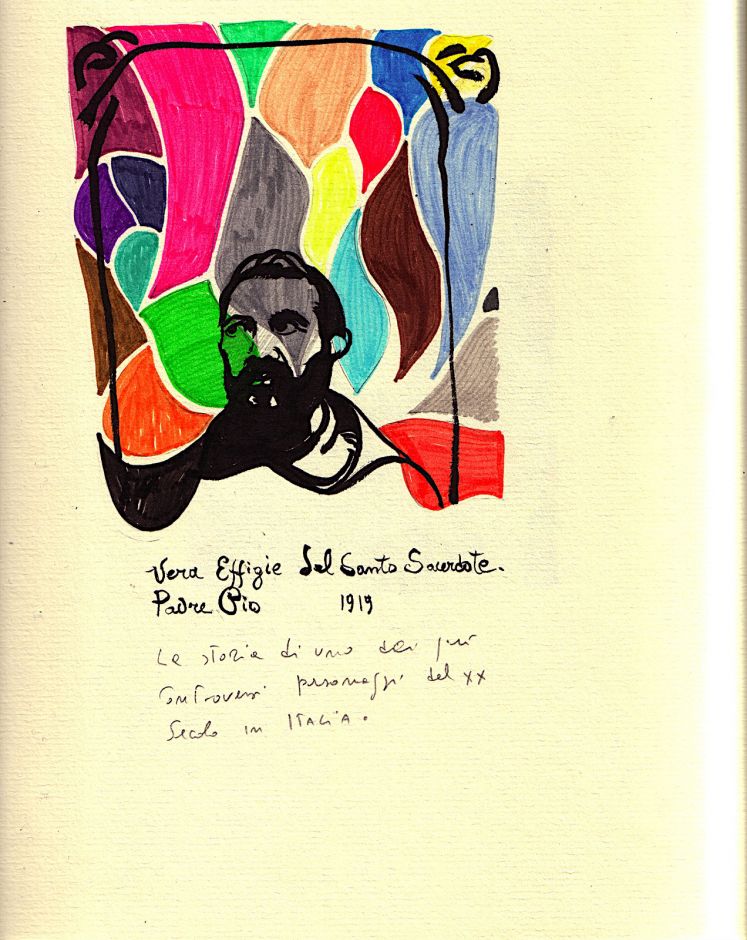 Vera Effigie Del Santo Sacerdote.
Padre Pio 1919
La storia di uno dei più
controversi personaggi del XX
Secolo in ITALIA.